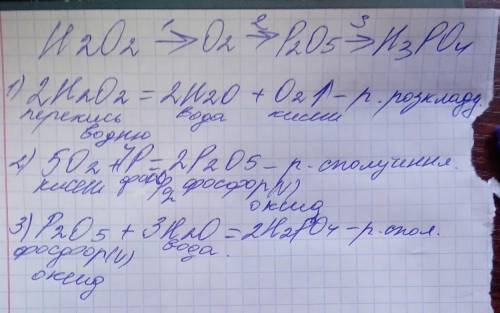 H2O2 1→ O2 2→ P2O5 3→ H3PO4
1) 2H2O2 = 2H2O + O2↑ - р. розкладу.
перекись вода кисень
водню
2) 5O2 + 4P = 2P2O5 - р. сполучення.
кисень фосфор(V)
оксид
3) P2O5 + 3H2O = 2H2PO4 - р. спол.
фосфор(V) вода.
оксид